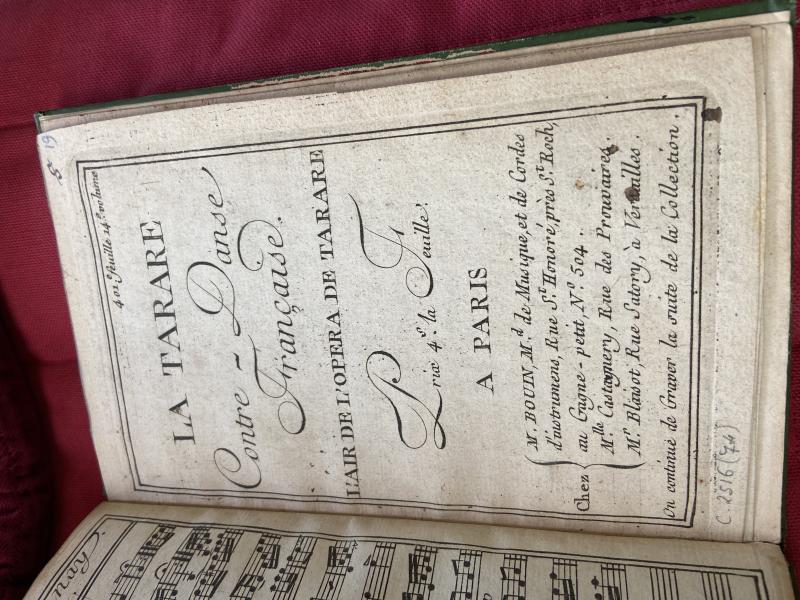 19
401.e feuille 14.e volume
LA TARARE
Contre-Danse
Française.
L'AIR DE L'OPERA DE TARARE
Prix 4.s la Feuille.
A PARIS
Chez
Mr. BOUIN, M.d de Musique, et de Cordes
d'instrumens, Rue St. Honoré, près St. Roch,
au Gagne-petit, No. 504.
Mlle Castagnery, Rue des Prouvaires.
Mr. Blaisot, Rue Satory, à Versailles.
On continue de Graver la suite de la Collection.